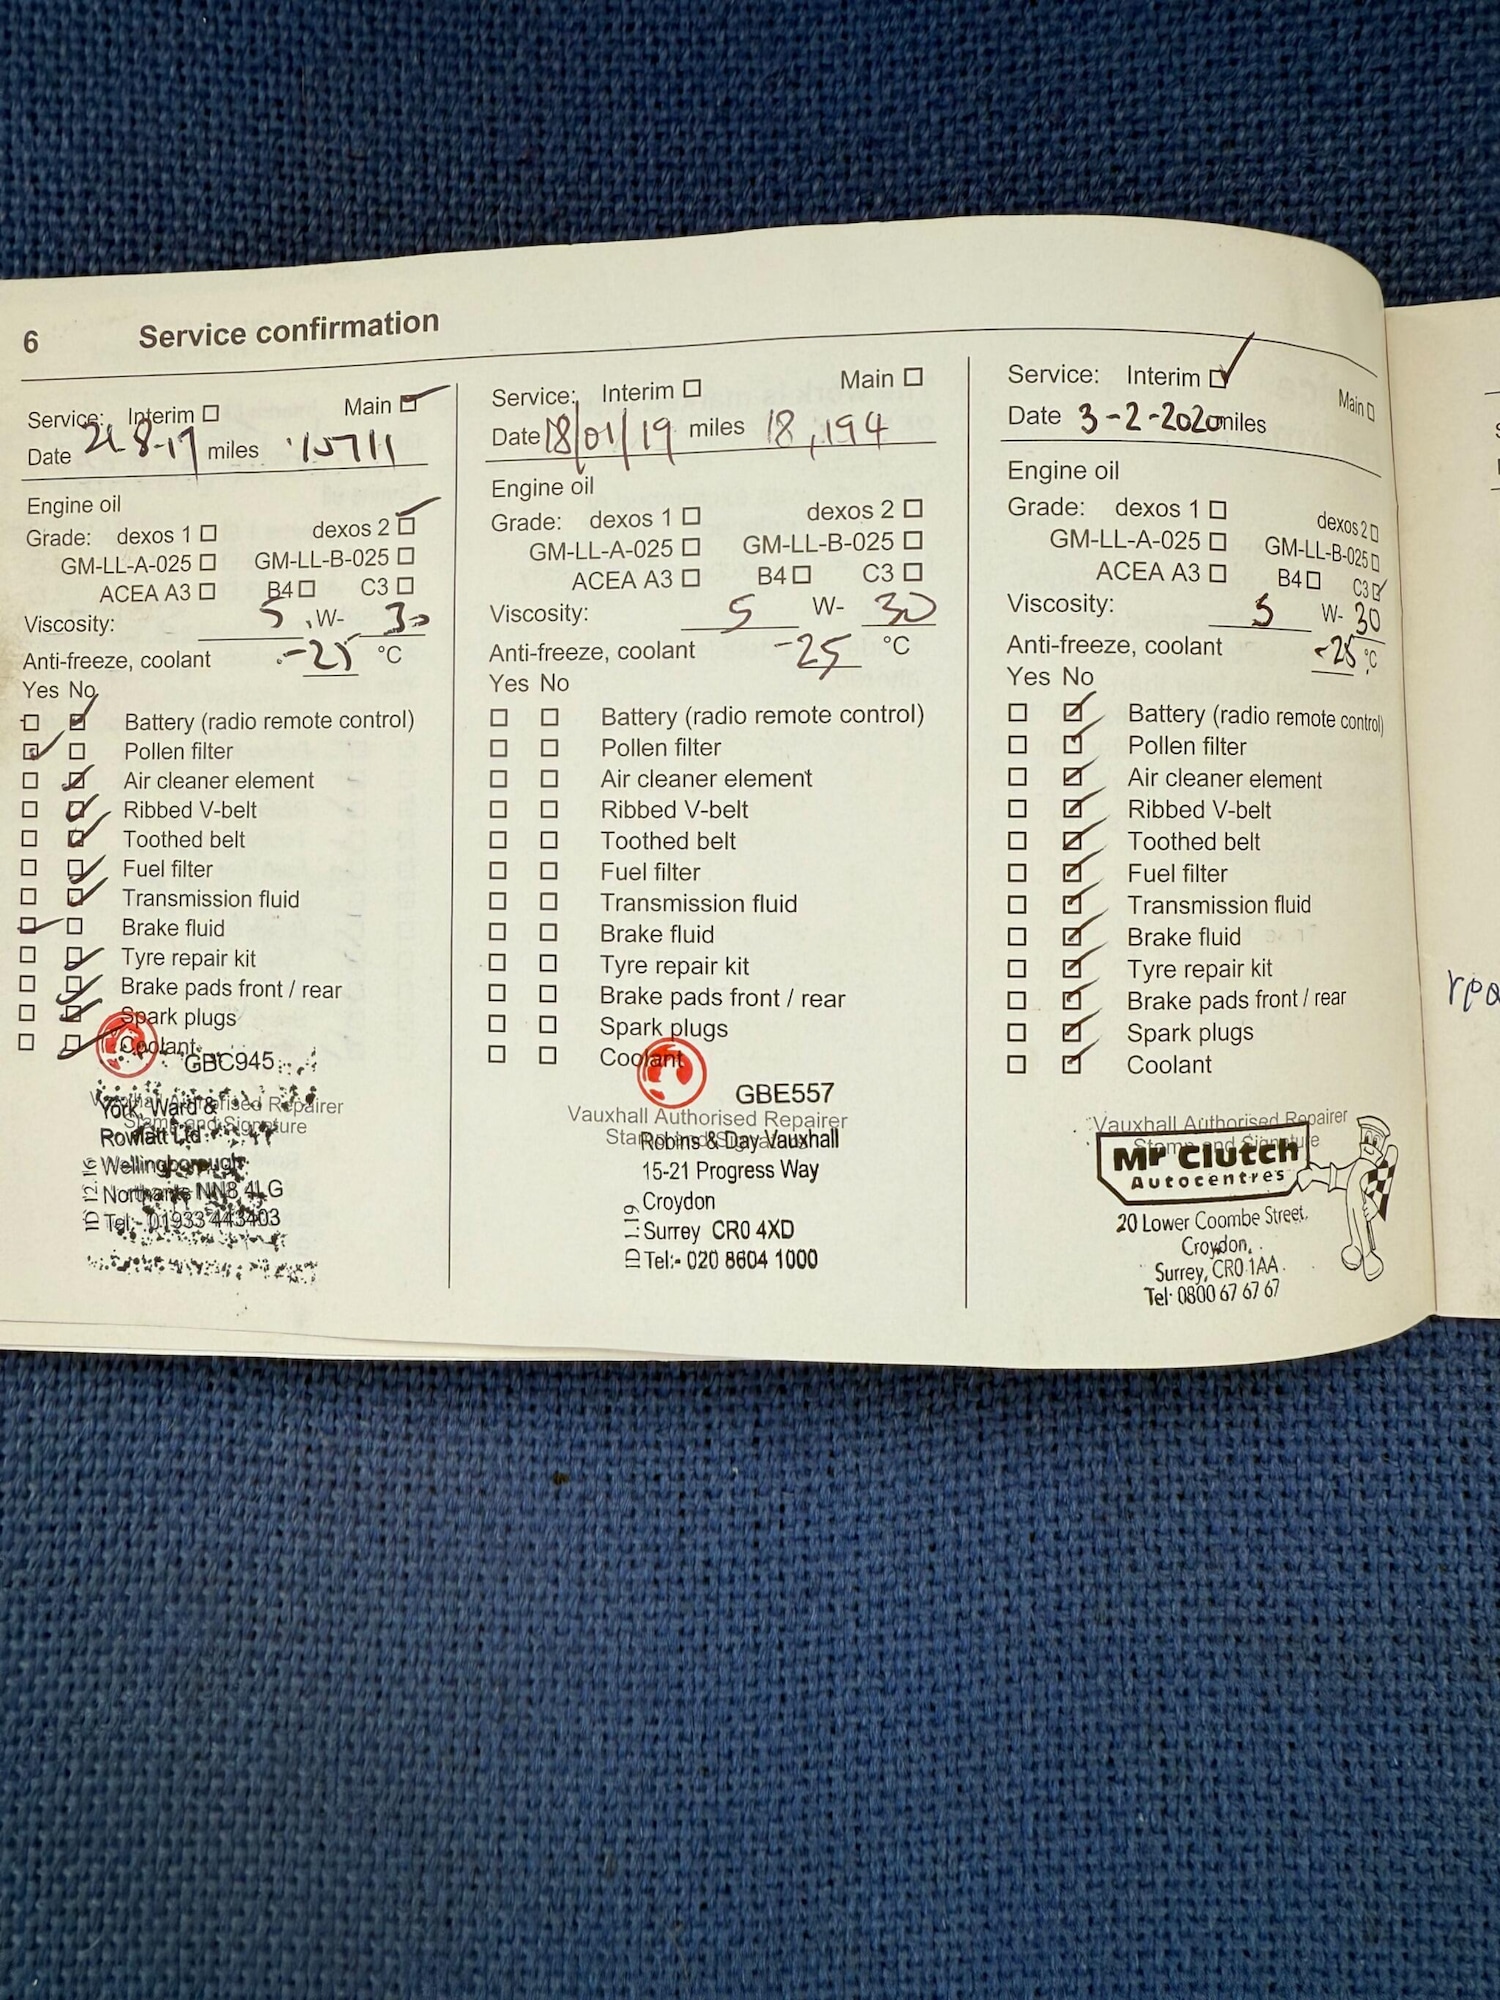 6 Service confirmation
Service: Interim Main
Date 21-8-17 miles 15711
Engine oil
Grade: dexos 1 dexos 2
GM-LL-A-025 GM-LL-B-025
ACEA A3 B4 C3
Viscosity: 5 W- 30
Anti-freeze, coolant -25 °C
Yes No
Battery (radio remote control)
Pollen filter
Air cleaner element
Ribbed V-belt
Toothed belt
Fuel filter
Transmission fluid
Brake fluid
Tyre repair kit
Brake pads front / rear
Spark plugs
Coolant
GBC945
Vauxhall Authorised Repairer
Stamp and Signature
York, Ward &
Rowlatt Ltd
Wellingborough
Northants NN8 4LG
Tel:- 01933 443403
ID 12.16
Service: Interim Main
Date 18/01/19 miles 18,194
Engine oil
Grade: dexos 1 dexos 2
GM-LL-A-025 GM-LL-B-025
ACEA A3 B4 C3
Viscosity: 5 W- 30
Anti-freeze, coolant -25 °C
Yes No
Battery (radio remote control)
Pollen filter
Air cleaner element
Ribbed V-belt
Toothed belt
Fuel filter
Transmission fluid
Brake fluid
Tyre repair kit
Brake pads front / rear
Spark plugs
Coolant
GBE557
Vauxhall Authorised Repairer
Stamp and Signature
Robins & Day Vauxhall
15-21 Progress Way
Croydon
Surrey CR0 4XD
Tel:- 020 8604 1000
ID 1.19
Service: Interim Main
Date 3-2-2020 miles
Engine oil
Grade: dexos 1 dexos 2
GM-LL-A-025 GM-LL-B-025
ACEA A3 B4 C3
Viscosity: 5 W- 30
Anti-freeze, coolant -25 °C
Yes No
Battery (radio remote control)
Pollen filter
Air cleaner element
Ribbed V-belt
Toothed belt
Fuel filter
Transmission fluid
Brake fluid
Tyre repair kit
Brake pads front / rear
Spark plugs
Coolant
Vauxhall Authorised Repairer
Stamp and Signature
Mr Clutch
Autocentres
20 Lower Coombe Street,
Croydon,
Surrey, CR0 1AA
Tel: 0800 67 67 67